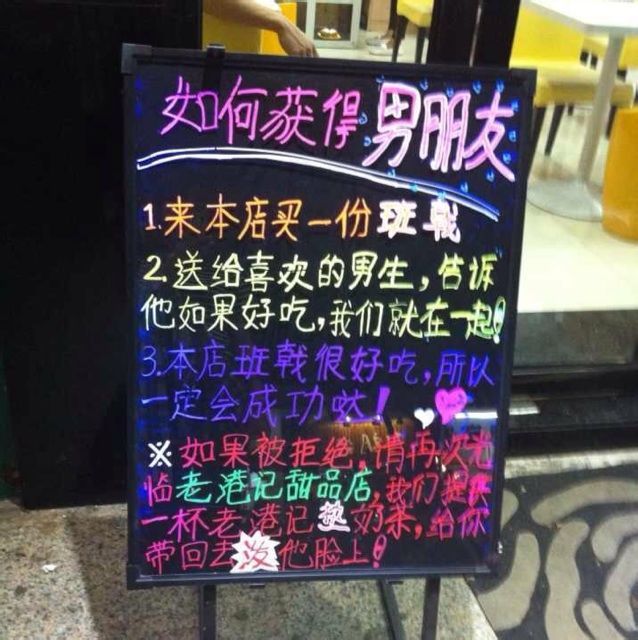 如何获得男朋友
1.来本店买一份班戟
2.送给喜欢的男生，告诉
他如果好吃，我们就在一起！
3.本店班戟很好吃，所以
一定会成功哒！
※如果被拒绝，请再次光
临老港记甜品店，我们提供
一杯老港记热奶茶，给你
带回去泼他脸上！